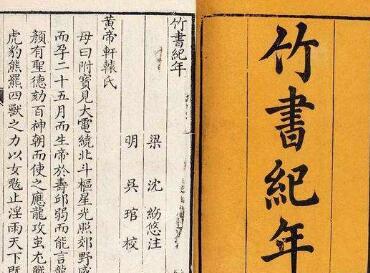 竹書紀年
竹書紀年
梁 沈約 注
明 吳琯 校
黃帝軒轅氏
母曰附寶見大電繞北斗樞星光照郊野感
而孕二十五月而生帝於壽邱弱而能言龍
顏有聖德劾百神朝而使之應龍攻蚩尤戰
虎豹熊羆四獸之力以女魃止淫雨天下既